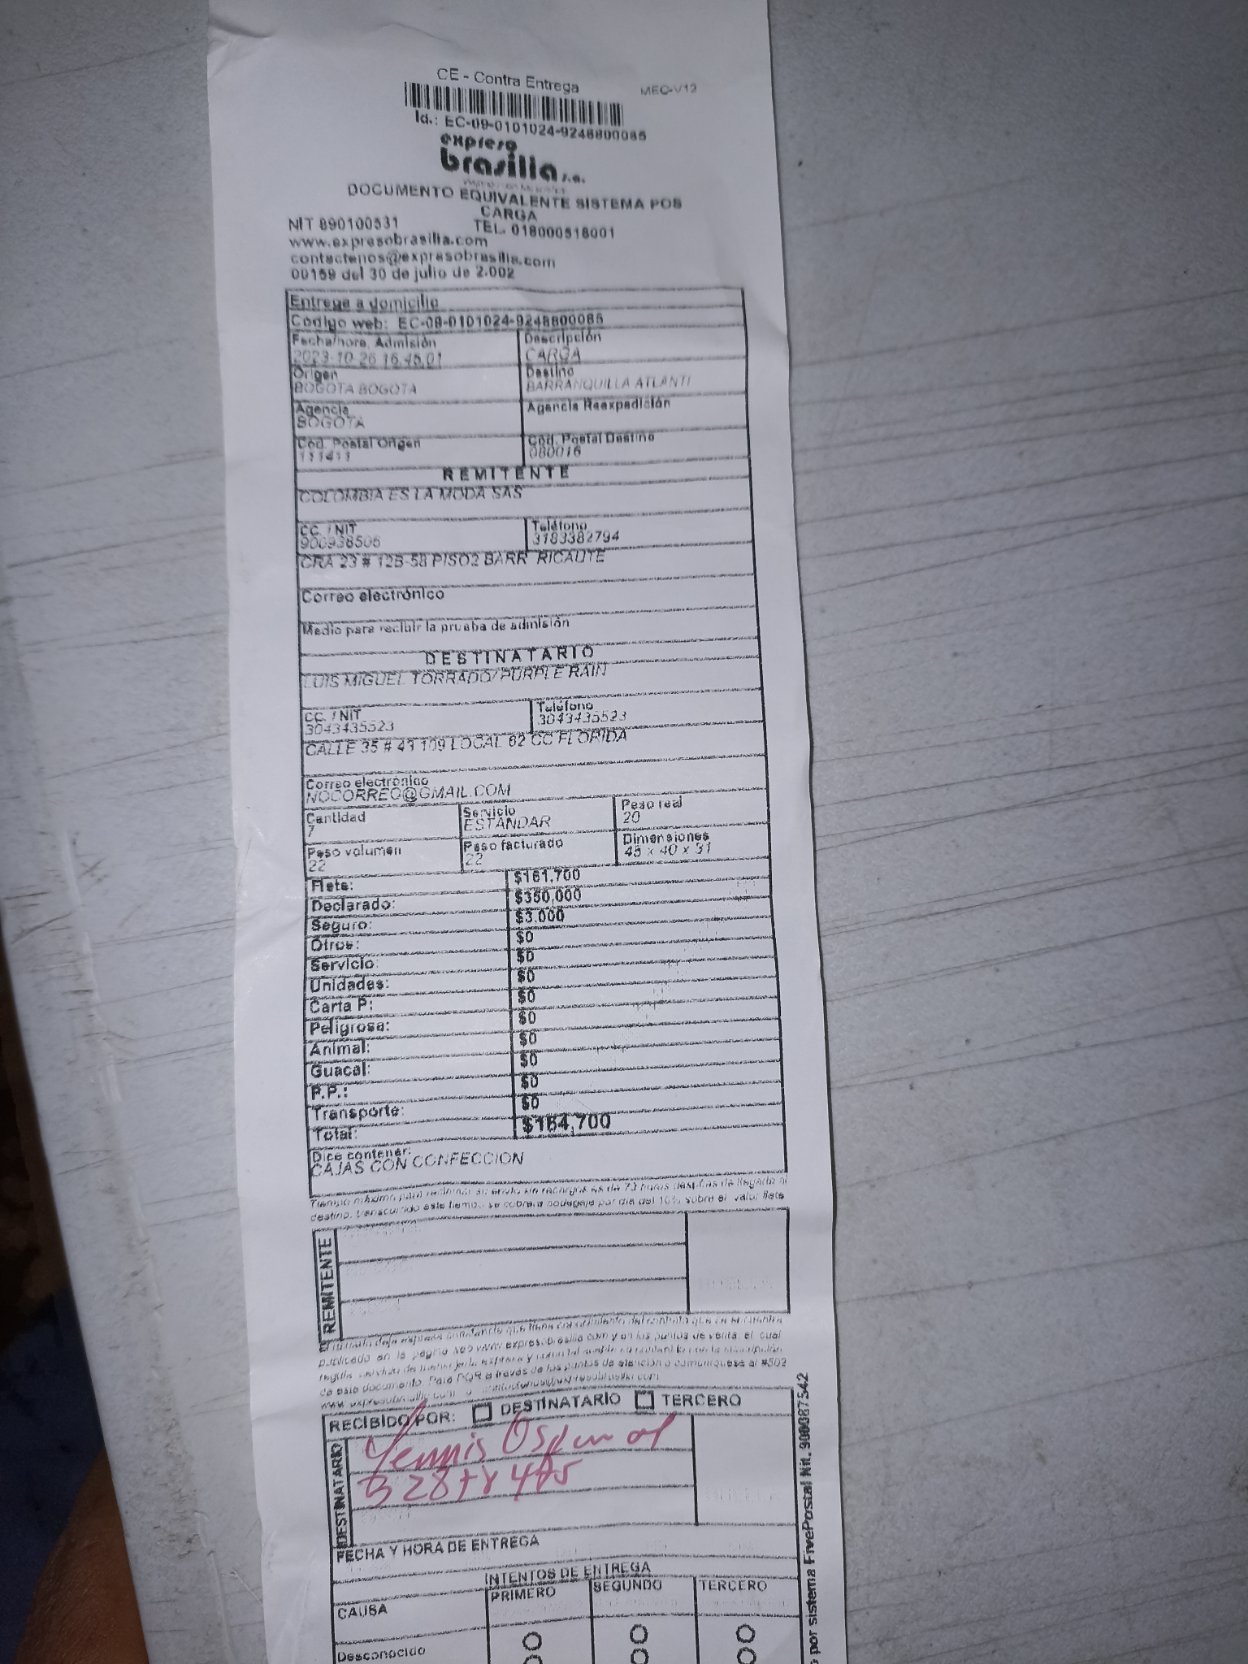 CE - Contra Entrega
MEC-V12
Id.: EC-09-0101024-9248800085
expreso
brasilia s.a.
DOCUMENTO EQUIVALENTE SISTEMA POS
CARGA
NIT 890100531 TEL. 018000518001
www.expresobrasilia.com
contactenos@expresobrasilia.com
00159 del 30 de julio de 2.002
Entrega a domicilio
Código web: EC-09-0101024-9248800085
Fecha/hora. Admisión Descripción
2023-10-26 16.45.01 CARGA
Origen Destino
BOGOTA BOGOTA BARRANQUILLA ATLANTI
Agencia Agencia Reexpedición
BOGOTA
Cód. Postal Origen Cód. Postal Destino
111411 080016
REMITENTE
COLOMBIA ES LA MODA SAS
CC. / NIT Teléfono
900938506 3183382794
CRA 23 # 12B-58 PISO2 BARR RICAUTE
Correo electrónico
Medio para recibir la prueba de admisión
DESTINATARIO
LUIS MIGUEL TORRADO/PURPLE RAIN
CC. / NIT Teléfono
3043435523 3043435523
CALLE 35 # 43 109 LOCAL 62 CC FLORIDA
Correo electrónico
NOCORREO@GMAIL.COM
Cantidad Servicio Peso real
7 ESTANDAR 20
Peso volumen Peso facturado Dimensiones
22 22 45 x 40 x 31
Flete: $161,700
Declarado: $350,000
Seguro: $3.000
Otros: $0
Servicio $0
Unidades: $0
Carta P: $0
Peligrosa: $0
Animal: $0
Guacal: $0
P.P.: $0
Transporte: $0
Total: $164,700
Dice contener:
CAJAS CON CONFECCION
Tiempo máximo para reclamar su envío sin recargos es de 72 horas después de llegado al
destino, transcurrido este tiempo, se cobrara bodegaje por día del 10% sobre el valor flete
REMITENTE
publicado en la página web www.expresobrasilia.com y en los puntos de venta, el cual
de este documento. Para PQR a través de los puntos de atención o comuníquese al #502
RECIBIDO POR: DESTINATARIO TERCERO
DESTINATARIO
Yennis Ospino
FECHA Y HORA DE ENTREGA
INTENTOS DE ENTREGA
CAUSA PRIMERO SEGUNDO TERCERO
Desconocido
por sistema FivePostal Nit. 900087542